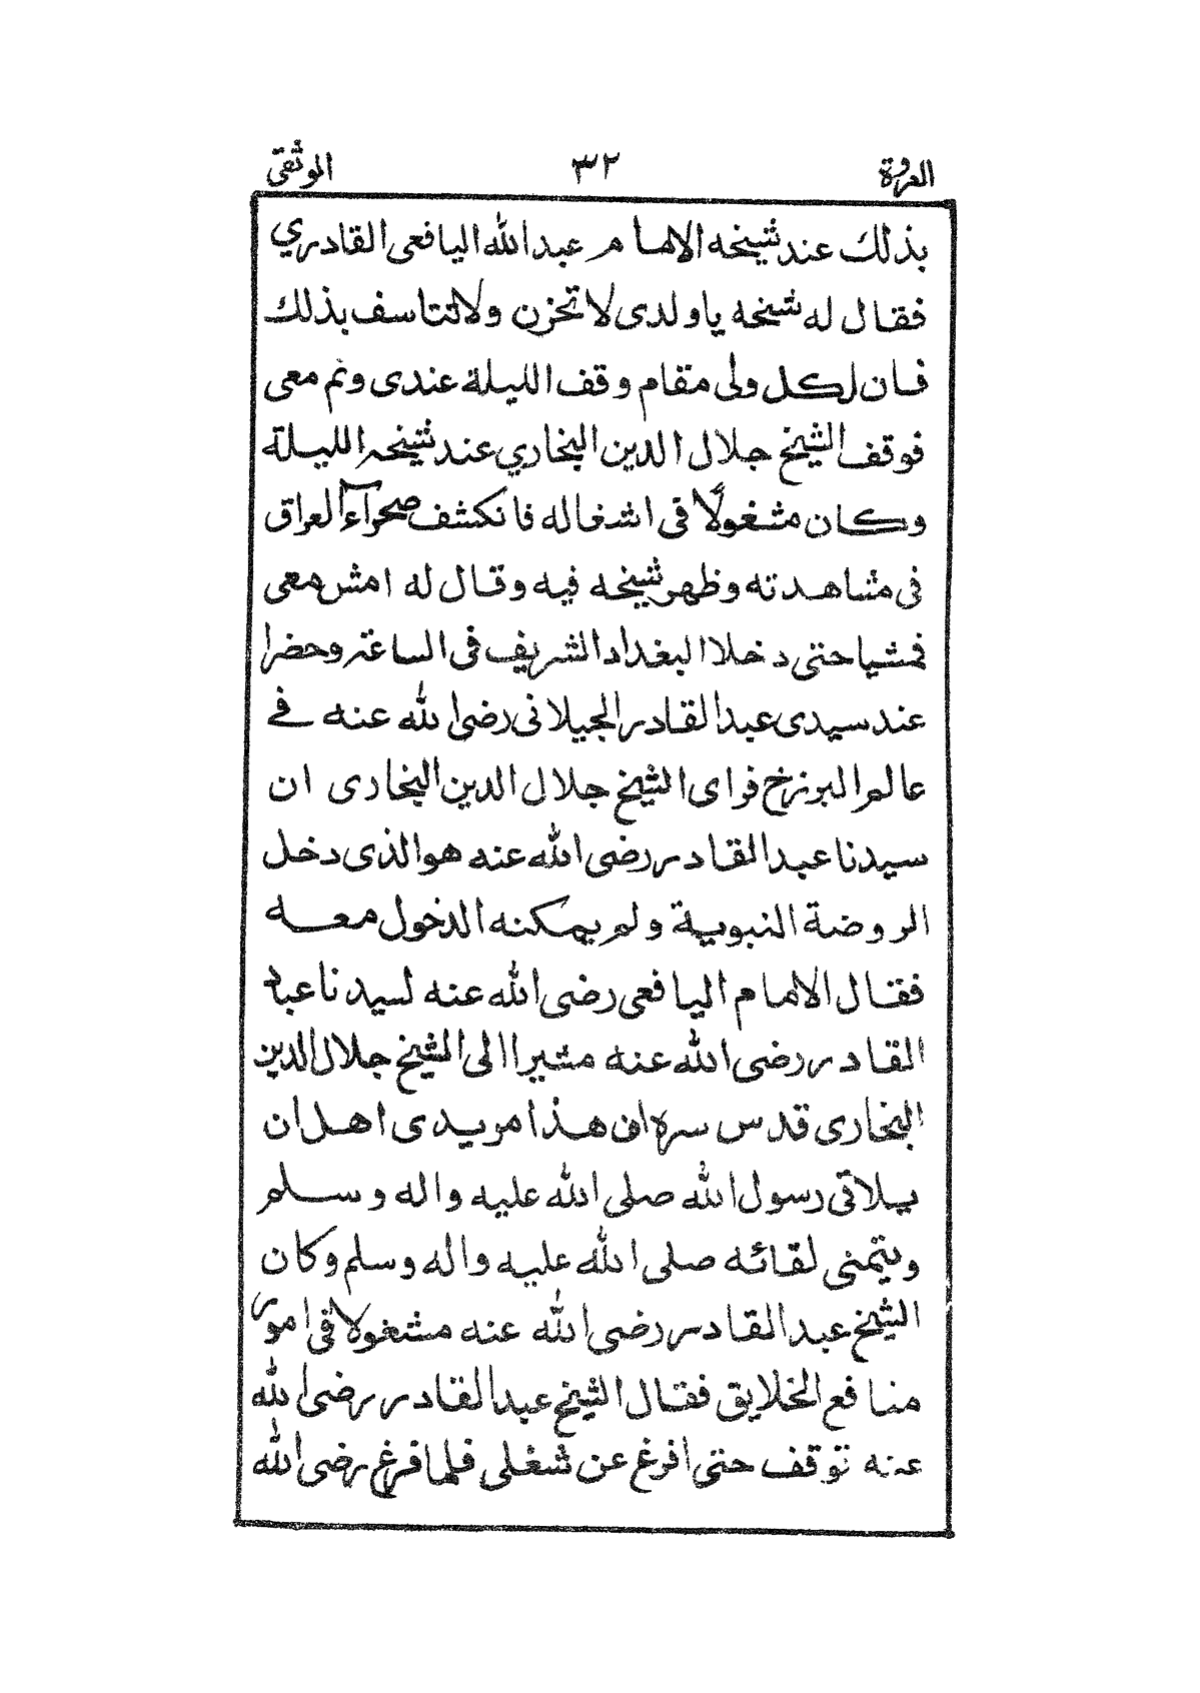 العروة ٣٢ الوثقى
بذلك عند شيخه الامام عبد الله اليافعى القادري
فقال له شيخه يا ولدى لا تحزن ولا تتاسف بذلك
فان لكل ولى مقام وقف الليلة عندى ونم معى
فوقف الشيخ جلال الدين البخاري عند شيخه الليلة
وكان مشغولًا فى اشغاله فانكشف صحرآء العراق
فى مشاهدته وظهر شيخه فيه وقال له امش معى
فمشيا حتى دخلا البغداد الشريف فى الساعة وحضرا
عند سيدى عبد القادر الجيلانى رضى الله عنه فے
عالم البرزخ فراى الشيخ جلال الدين البخارى ان
سيدنا عبد القادر رضى الله عنه هو الذى دخل
الروضة النبوية ولم يمكنه الدخول معه
فقال الامام اليافعى رضى الله عنه لسيدنا عبد
القادر رضى الله عنه مشيرا الى الشيخ جلال الدين
البخارى قدس سره ان هذا مريدى اهل ان
يلاقى رسول الله صلى الله عليه واله وسلم
ويتمنى لقائه صلى الله عليه واله وسلم وكان
الشيخ عبد القادر رضى الله عنه مشغولا فى امور
منافع الخلايق فقال الشيخ عبد القادر رضى الله
عنه توقف حتى افرغ عن شغلى فلما فرغ رضى الله